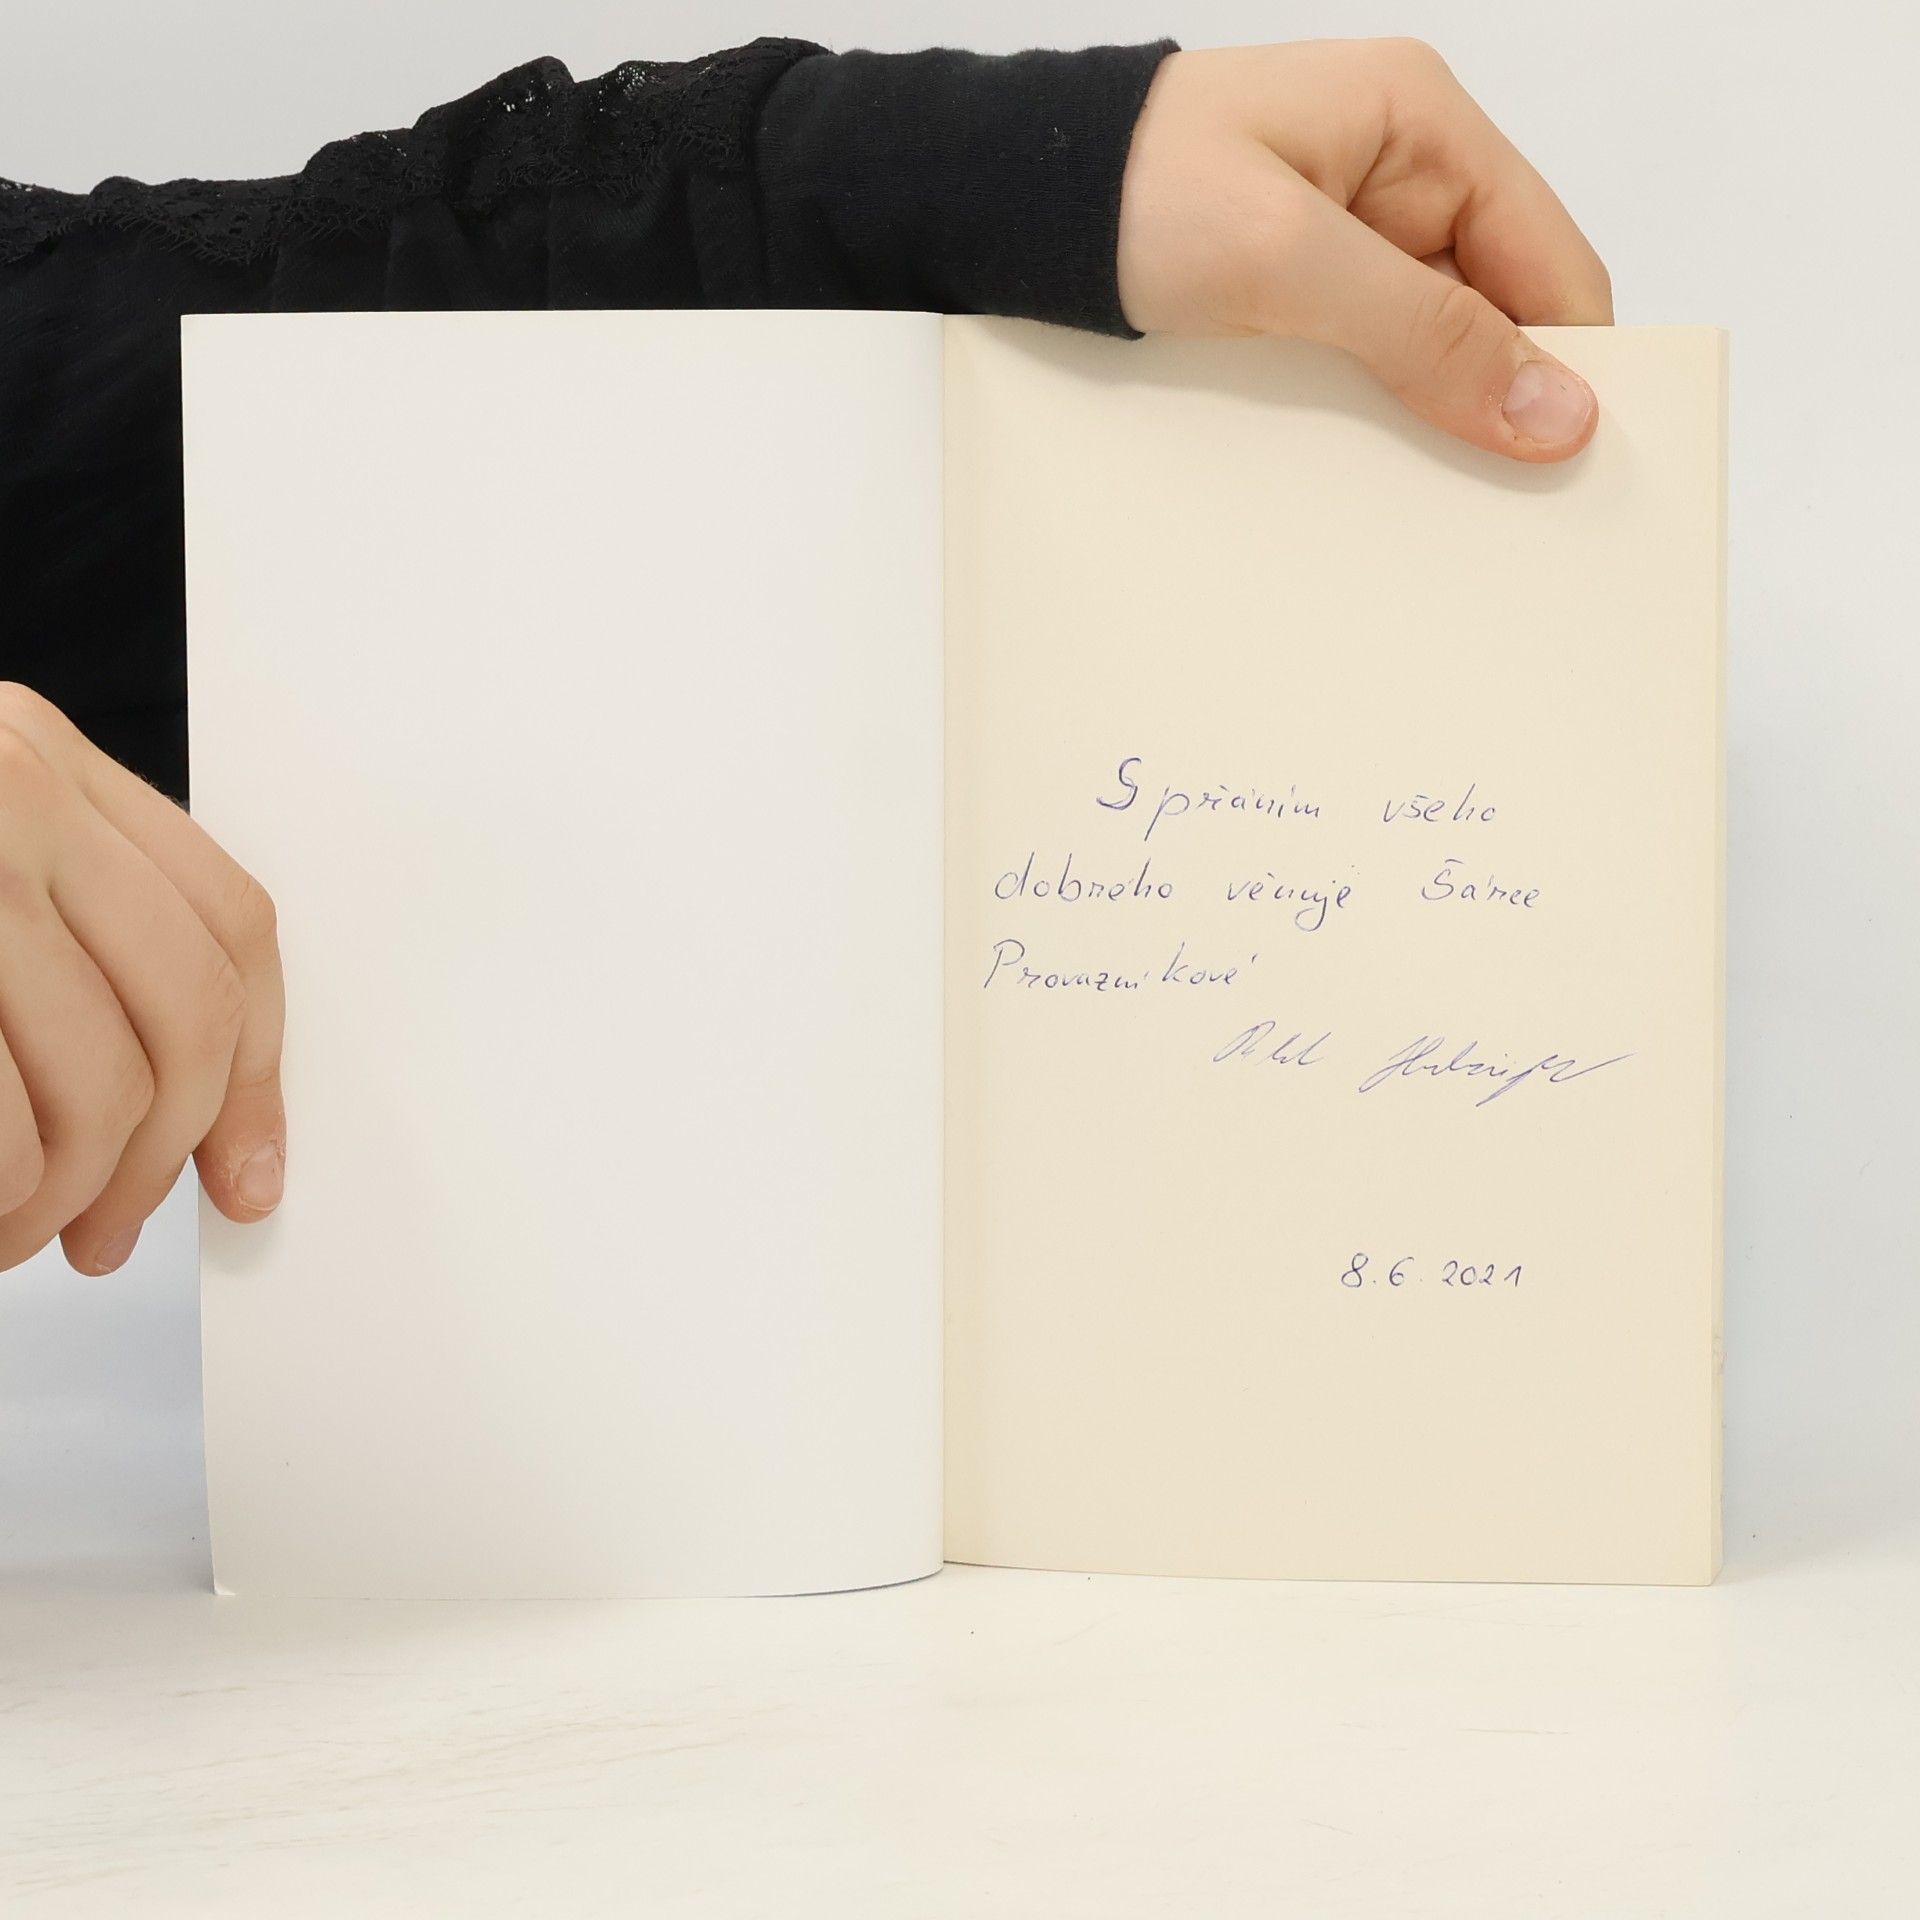 S přáním všeho
dobrého věnuje Šárce
Provazníkové
8.6.2021